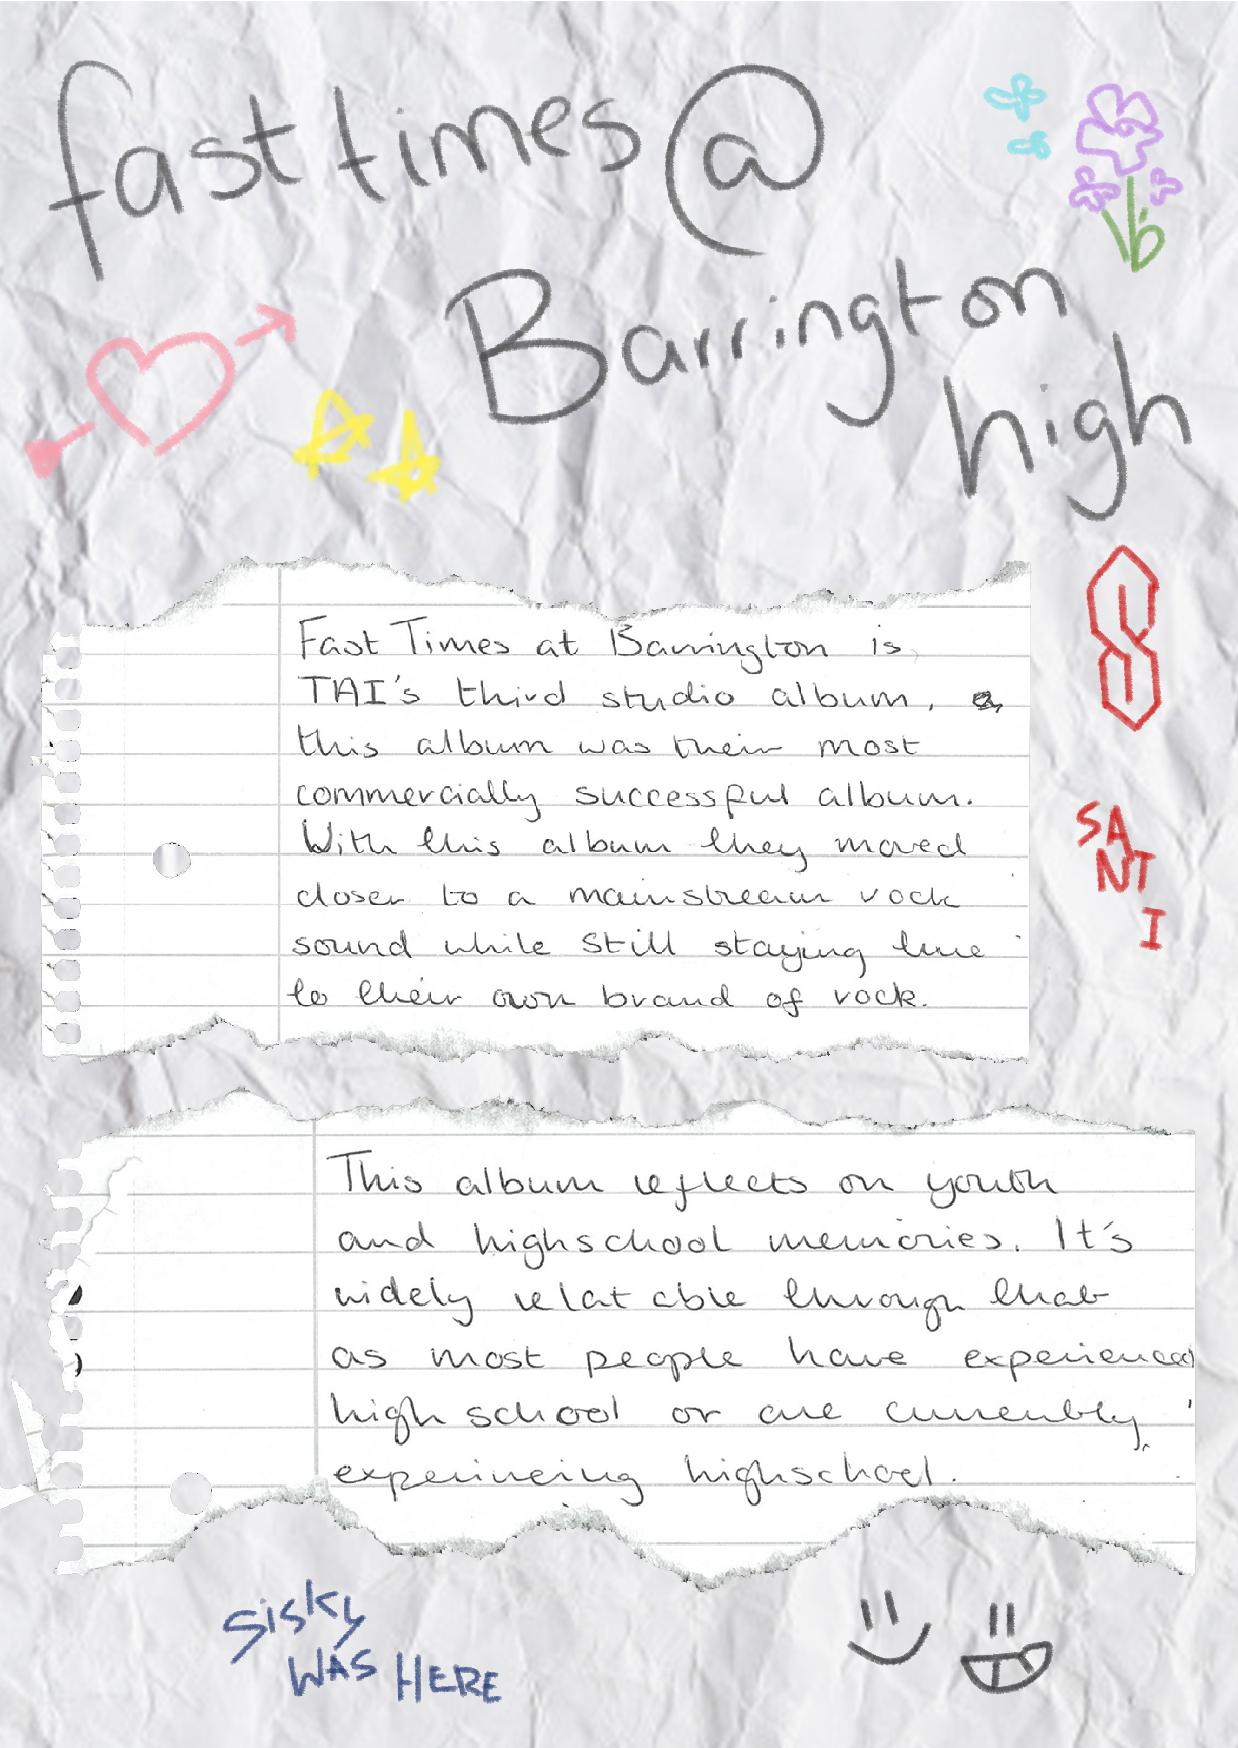 fast times @
Barrington
high
Fast Times at Barrington is
TAI's third studio album,
this album was their most
commercially successful album.
With this album they moved
closer to a mainstream rock
sound while still staying true
to their own brand of rock.
SA
NT
I
This album reflects on youth
and highschool memories. It's
widely relatable through that
as most people have experienced
high school or are currently
experincing highschool.
Sisky
WAS HERE